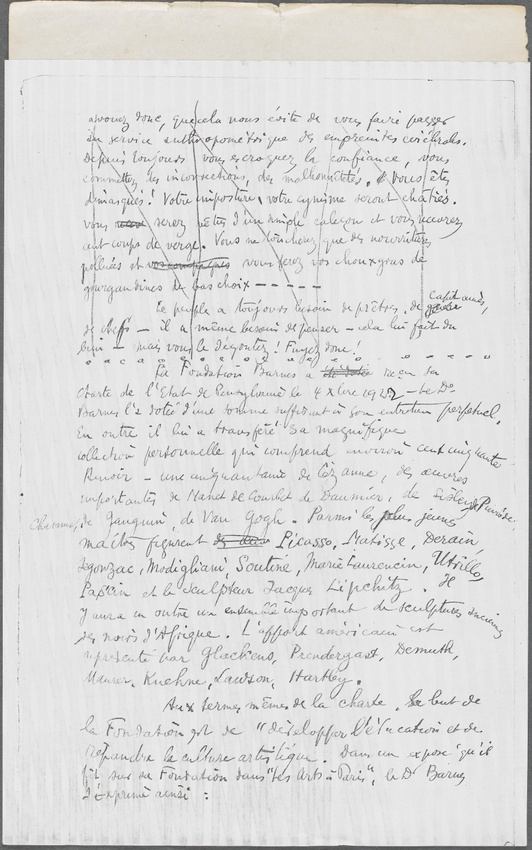 avouez donc, que cela nous évite de vous faire passer
au service anthropométrique des empreintes cérébrales.
Depuis toujours vous escroquez la confiance, vous
commettez des incorrections, des malhonnêtetés, vous êtes
démasqués! Votre imposture, votre cynisme seront châtiés.
vous serez vêtus d'un simple caleçon et vous recevrez
cent coups de verge. Vous ne toucherez que des nourritures
polluées et vous ferez vos choux gras de
gourgandines de bas choix - - - - -
Le peuple a toujours besoin de prêtres, de capitaines,
de chefs — il a même besoin de penser — cela lui fait du
bien — mais vous le dégoûtez! Fuyez donc!
La Fondation Barnes a reçu sa
Charte de l'Etat de Pensylvanie le 4 Xbre 1922 — Le Dr
Barnes l'a dotée d'une somme suffisant à son entretien perpétuel.
En outre il lui a transféré sa magnifique
collection personnelle qui comprend environ cent cinquante
Renoir — une cinquantaine de Cézanne, des œuvres
importantes de Manet de Courbet de Daumier, de Sisley, de Puvis de
Chavannes, de Gauguin, de Van Gogh. Parmi les plus jeunes
maîtres figurent Picasso, Matisse, Derain,
Segonzac, Modigliani, Soutine, Marie Laurencin, Utrillo,
Pascin et le sculpteur Jacques Lipchitz. Il
y aura en outre un ensemble important de sculptures anciennes
des noirs d'Afrique. L'apport américain est
représenté par Glackens, Prendergast, Demuth,
Maurer, Kuehne, Lawson, Hartley.
Aux termes mêmes de la charte, le but de
la Fondation est de "développer l'éducation et de
répandre la culture artistique. Dans un exposé qu'il
fit sur sa Fondation dans "Les Arts à Paris", le Dr Barnes
s'exprime ainsi :